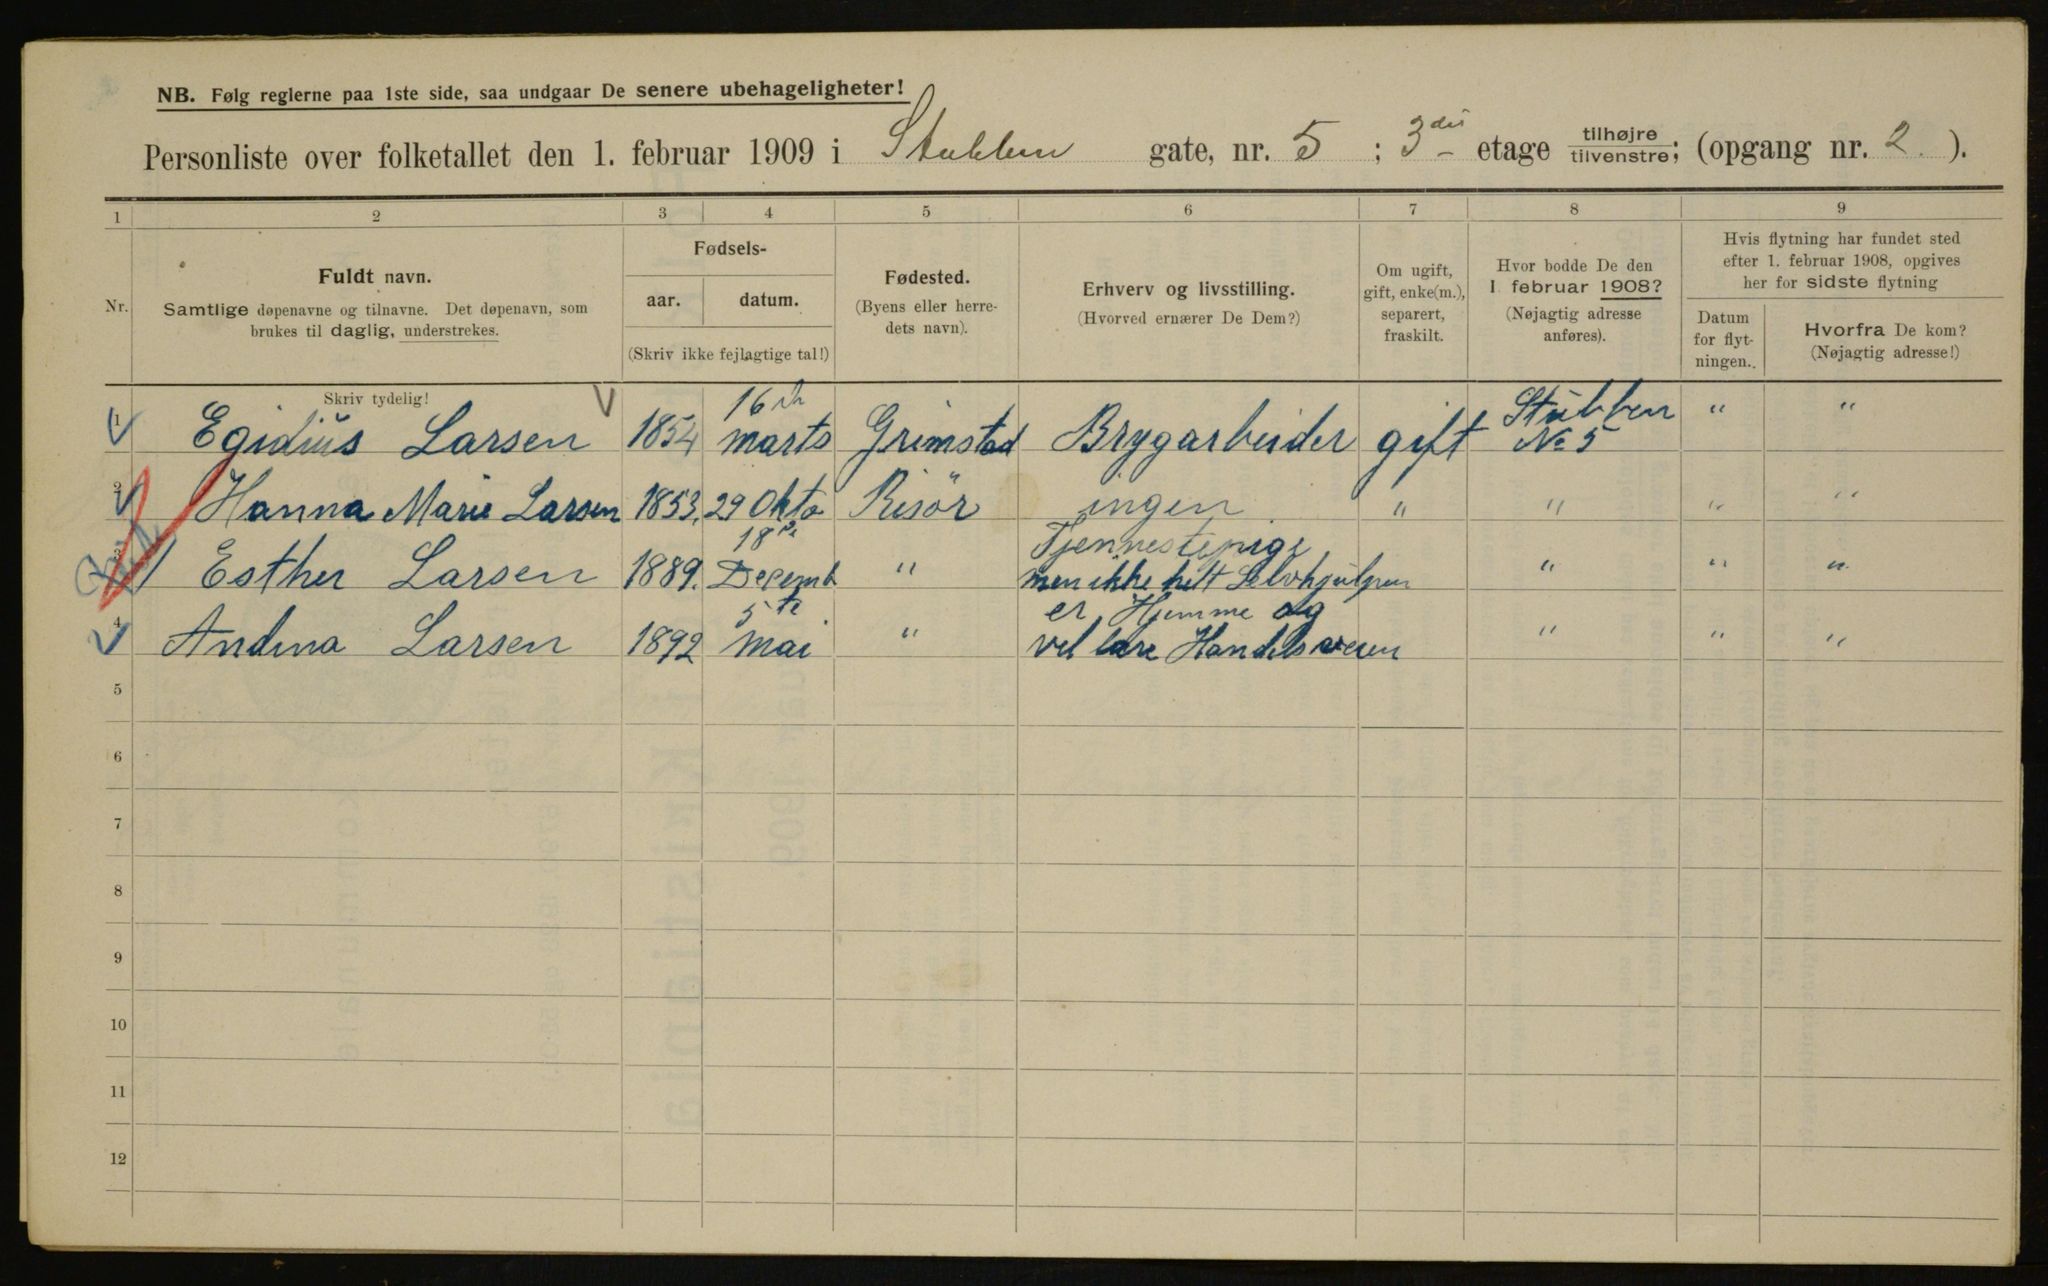 NB. Følg reglerne paa 1ste side, saa undgaar De senere ubehageligheter!
Personliste over folketallet den 1. februar 1909 i Stubben gate, nr. 5 ; 3die etage tilhøjre / tilvenstre; (opgang nr. 2. ).
1 2 3 4 5 6 7 8 9
Nr.
Fuldt navn.
Samtlige døpenavne og tilnavne. Det døpenavn, som
brukes til daglig, understrekes.
Fødsels-
aar. datum.
(Skriv ikke fejlagtige tal!)
Fødested.
(Byens eller herre-
dets navn).
Erhverv og livsstilling.
(Hvorved ernærer De Dem?)
Om ugift,
gift, enke(m.),
separert,
fraskilt.
Hvor bodde De den
1. februar 1908?
(Nøjagtig adresse
anføres).
Hvis flytning har fundet sted
efter 1. februar 1908, opgives
her for sidste flytning
Datum
for flyt-
ningen..
Hvorfra De kom?
(Nøjagtig adresse!)
Skriv tydelig!
1 Egidius Larsen 1854 16 marts Grimstad Brygarbeider gift Stubben No 5 " "
2 Hanna Marie Larsen 1853. 29 Okto Risör ingen " " " "
3 Esther Larsen 1889. 18de Decemb " Tjennestepige men ikke helt Selvhjulpen " " "
4 Andina Larsen 1892 5te Mai " er Hjemme og vil lære Handelsveien " " "
5
6
7
8
9
10
11
12